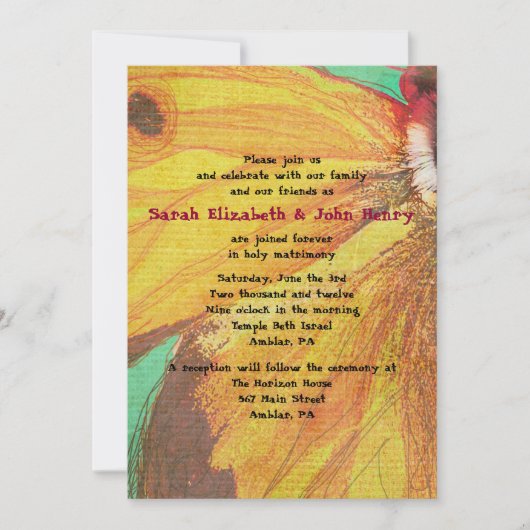 Please join us
and celebrate with our family
and our friends as
Sarah Elizabeth & John Henry
are joined forever
in holy matrimony
Saturday, June the 3rd
Two thousand and twelve
Nine o'clock in the morning
Temple Beth Israel
Amblar, PA
A reception will follow the ceremony at
The Horizon House
567 Main Street
Amblar, PA